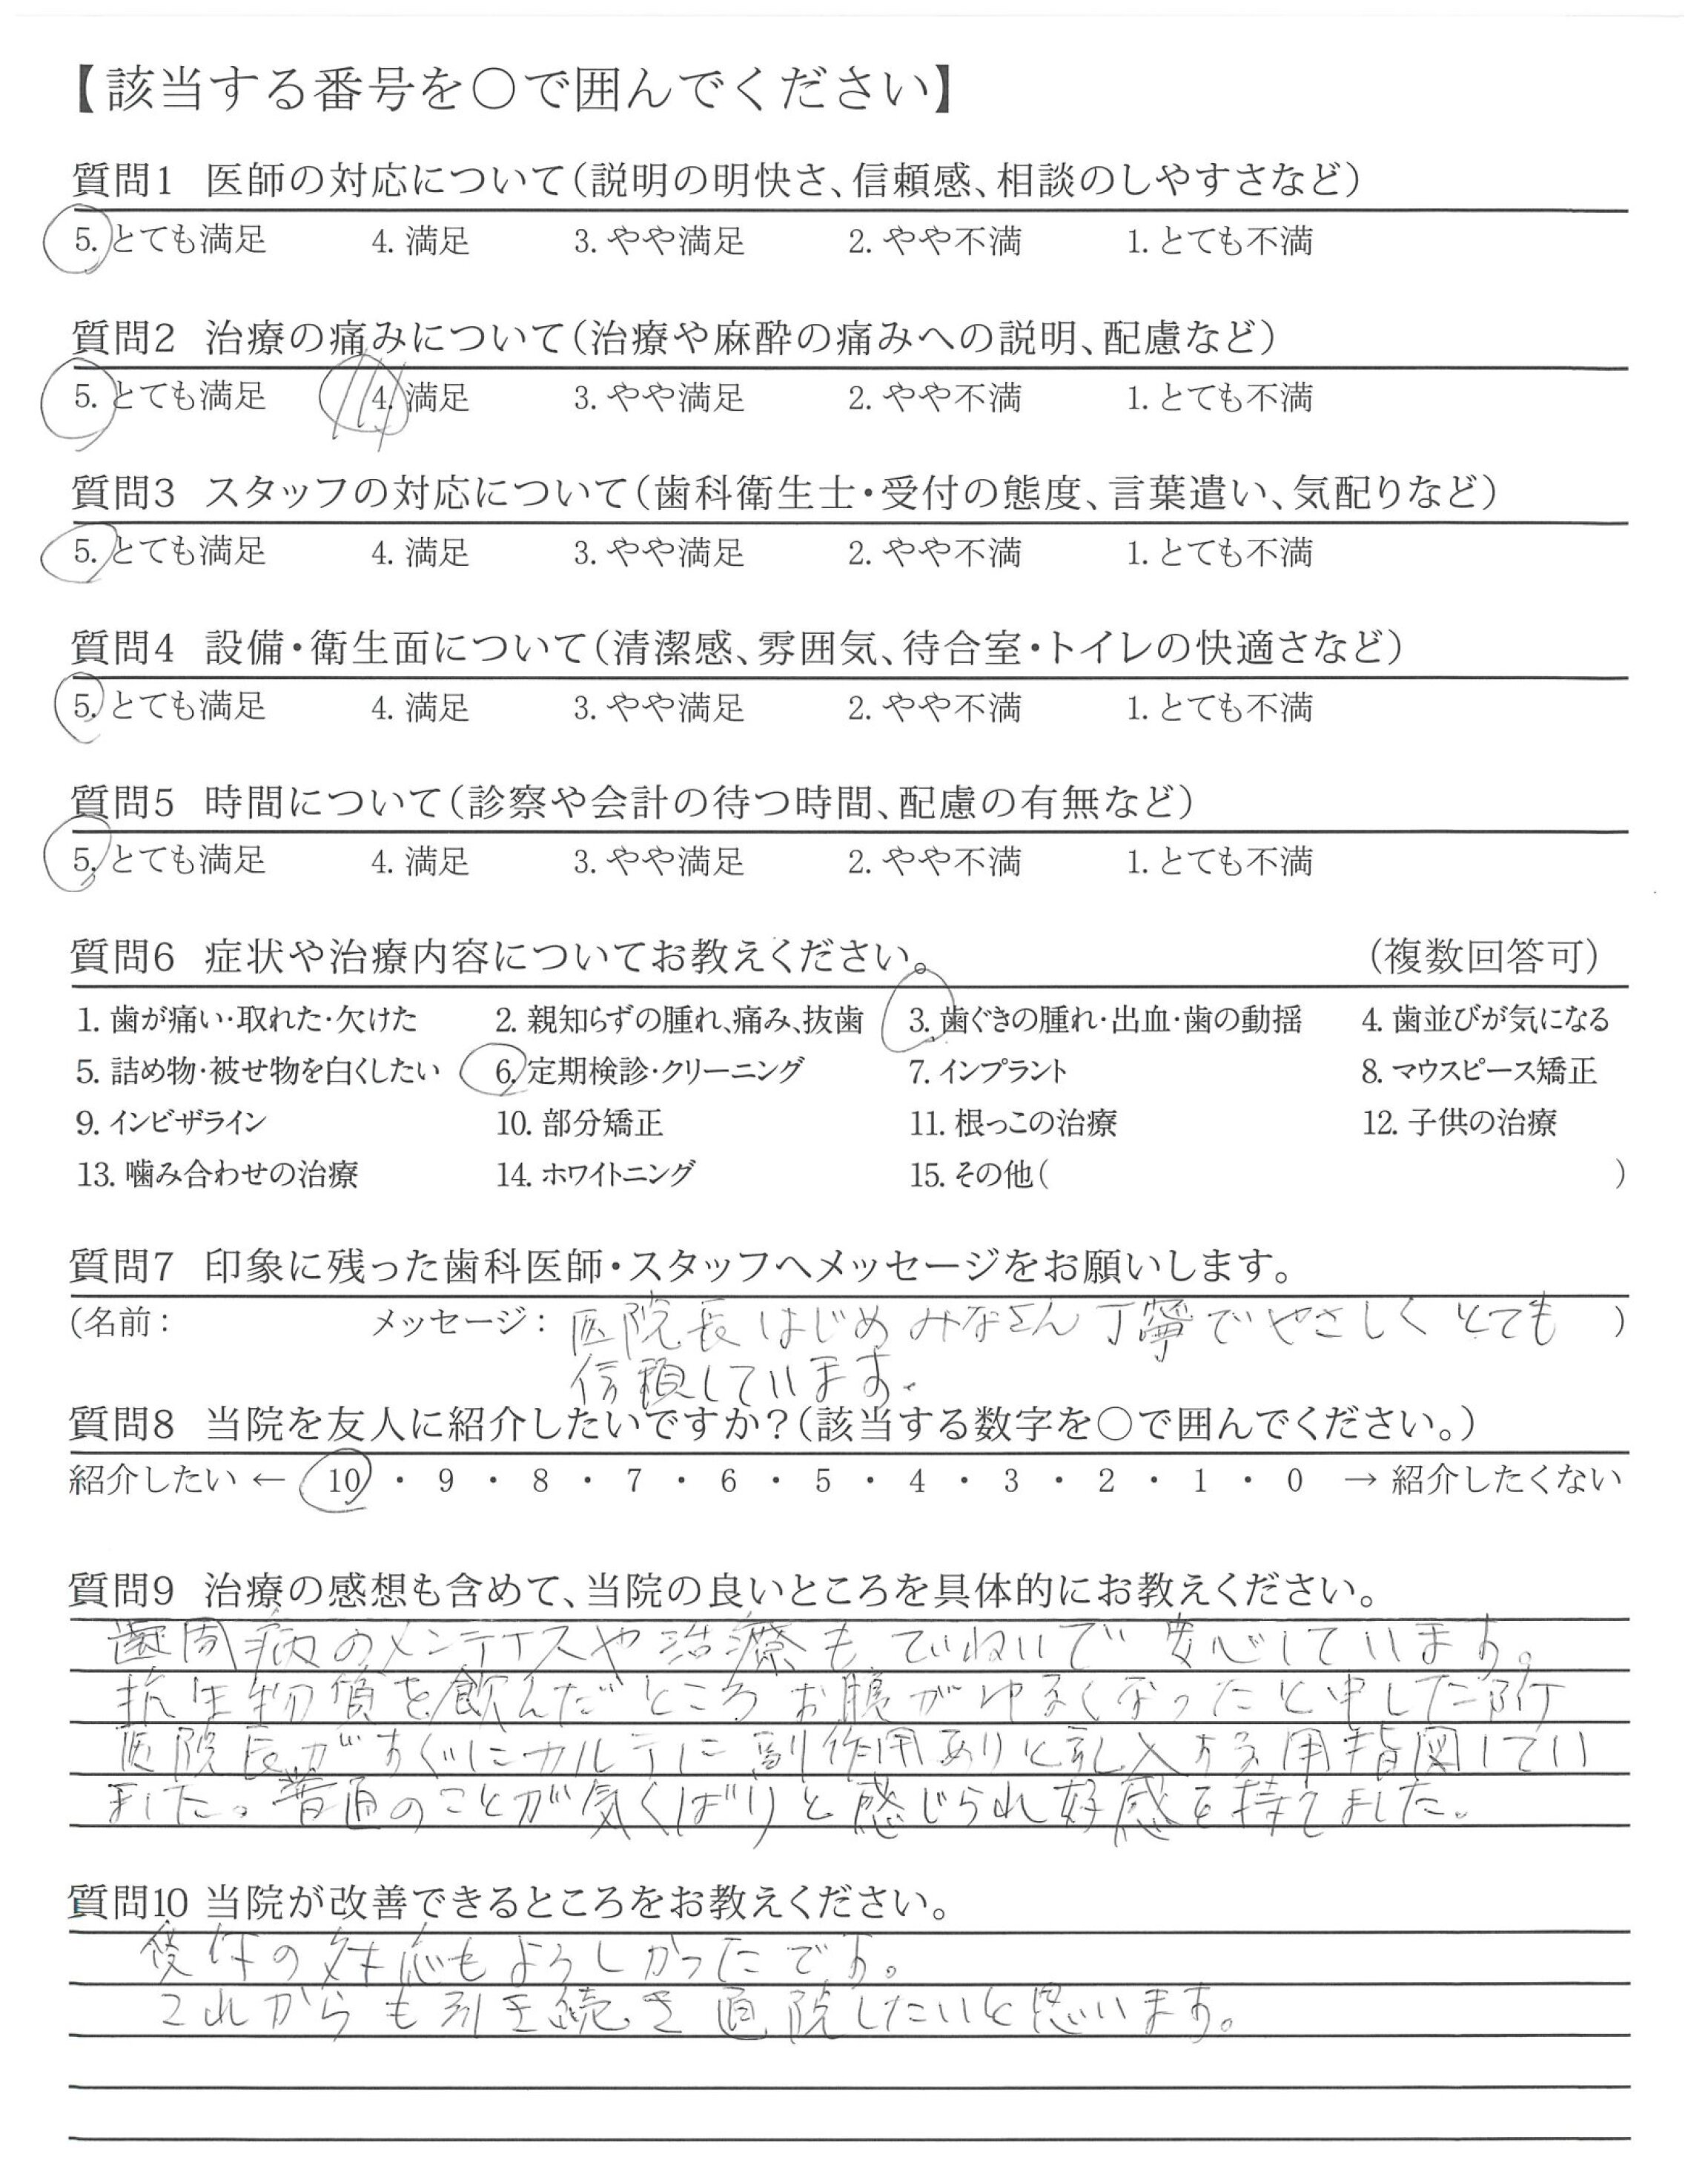 【該当する番号を〇で囲んでください】
質問1 医師の対応について（説明の明快さ、信頼感、相談のしやすさなど）
5. とても満足 4. 満足 3. やや満足 2. やや不満 1. とても不満
質問2 治療の痛みについて（治療や麻酔の痛みへの説明、配慮など）
5. とても満足 4. 満足 3. やや満足 2. やや不満 1. とても不満
質問3 スタッフの対応について（歯科衛生士・受付の態度、言葉遣い、気配りなど）
5. とても満足 4. 満足 3. やや満足 2. やや不満 1. とても不満
質問4 設備・衛生面について（清潔感、雰囲気、待合室・トイレの快適さなど）
5. とても満足 4. 満足 3. やや満足 2. やや不満 1. とても不満
質問5 時間について（診察や会計の待つ時間、配慮の有無など）
5. とても満足 4. 満足 3. やや満足 2. やや不満 1. とても不満
質問6 症状や治療内容についてお教えください。 （複数回答可）
1. 歯が痛い・取れた・欠けた 2. 親知らずの腫れ、痛み、抜歯 3. 歯ぐきの腫れ・出血・歯の動揺 4. 歯並びが気になる
5. 詰め物・被せ物を白くしたい 6. 定期検診・クリーニング 7. インプラント 8. マウスピース矯正
9. インビザライン 10. 部分矯正 11. 根っこの治療 12. 子供の治療
13. 噛み合わせの治療 14. ホワイトニング 15. その他（ ）
質問7 印象に残った歯科医師・スタッフへメッセージをお願いします。
（名前： メッセージ： 医院長はじめみなさん丁寧でやさしくとても ）
信頼しています。
質問8 当院を友人に紹介したいですか？（該当する数字を〇で囲んでください。）
紹介したい ← 10 ・ 9 ・ 8 ・ 7 ・ 6 ・ 5 ・ 4 ・ 3 ・ 2 ・ 1 ・ 0 → 紹介したくない
質問9 治療の感想も含めて、当院の良いところを具体的にお教えください。
歯周病のメンテイスや治療もていねいで安心しています。
抗生物質を飲んだところお腹がゆるくなったと申した所
医院長がすぐにカルテに副作用ありと記入する用指図してい
ました。普通のことが気くばりと感じられ好感を持てました。
質問10 当院が改善できるところをお教えください。
の対応もよろしかったです。
これからも引き続き通院したいと思います。